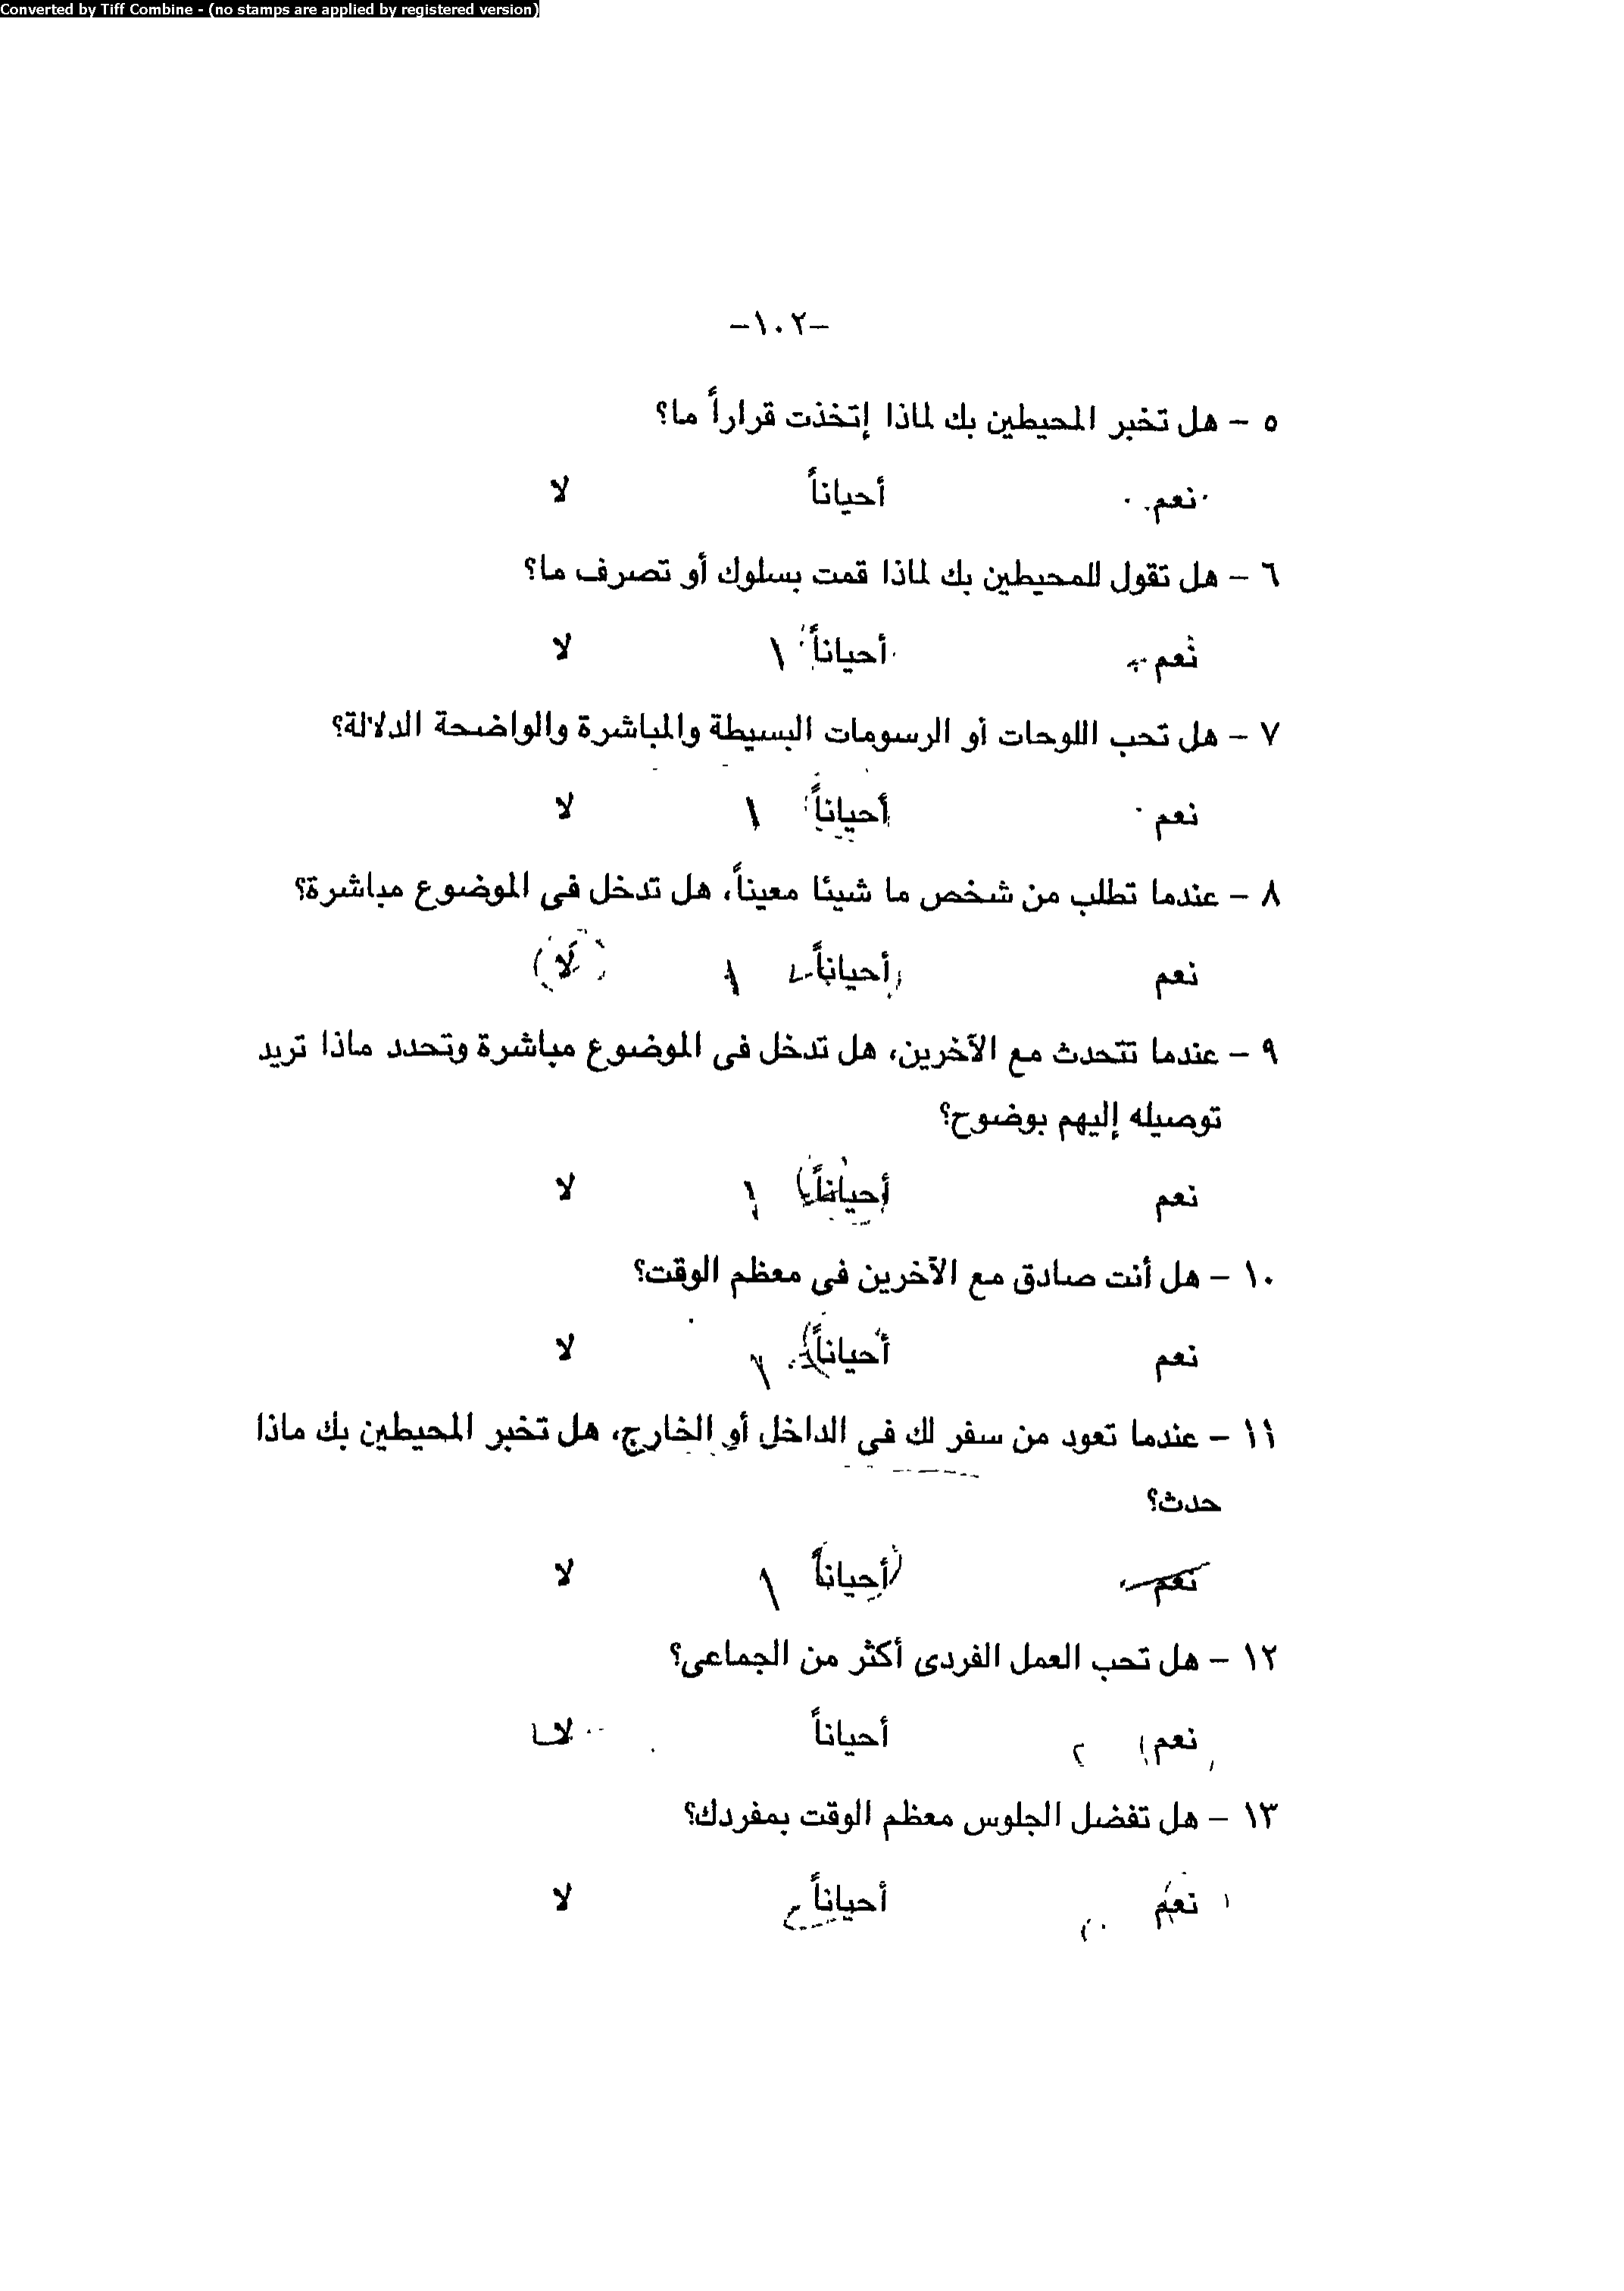 Converted by Tiff Combine - (no stamps are applied by registered version)
-١٠٢-
٥ - هل تخبر المحيطين بك لماذا إتخذت قراراً ما؟
نعم أحياناً لا
٦ - هل تقول للمحيطين بك لماذا قمت بسلوك أو تصرف ما؟
نعم أحياناً ١ لا
٧ - هل تحب اللوحات أو الرسومات البسيطة والمباشرة والواضحة الدلالة؟
نعم أحياناً ١ لا
٨ - عندما تطلب من شخص ما شيئا معيناً، هل تدخل فى الموضوع مباشرة؟
نعم أحياناً ١ لا
٩ - عندما تتحدث مع الآخرين، هل تدخل فى الموضوع مباشرة وتحدد ماذا تريد
توصيله إليهم بوضوح؟
نعم أحياناً ١ لا
١٠ - هل أنت صادق مع الآخرين فى معظم الوقت؟
نعم أحياناً ١ لا
١١ - عندما تعود من سفر لك فى الداخل أو الخارج، هل تخبر المحيطين بك ماذا
حدث؟
نعم أحياناً ١ لا
١٢ - هل تحب العمل الفردى أكثر من الجماعى؟
نعم ٢ أحياناً لا
١٣ - هل تفضل الجلوس معظم الوقت بمفردك؟
نعم أحياناً لا